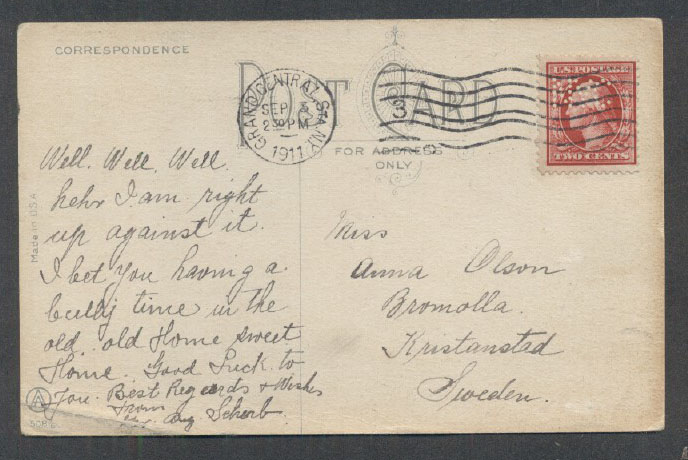 CORRESPONDENCE
POST CARD
FOR ADDRESS
ONLY
GRAND CENTRAL STA. N.Y.
SEP 3
230 PM
1911
3
U.S. POSTAGE
TWO CENTS
Made in U.S.A.
Well. Well. Well.
hehr I am right
up against it.
I bet you having a
bully time in the
old. old Home sweet
Home. Good Luck to
You. Best Regards & Wishes
from
Aug Scherb.
Miss
Anna Olson
Bromolla.
Kristansted
Sweden.